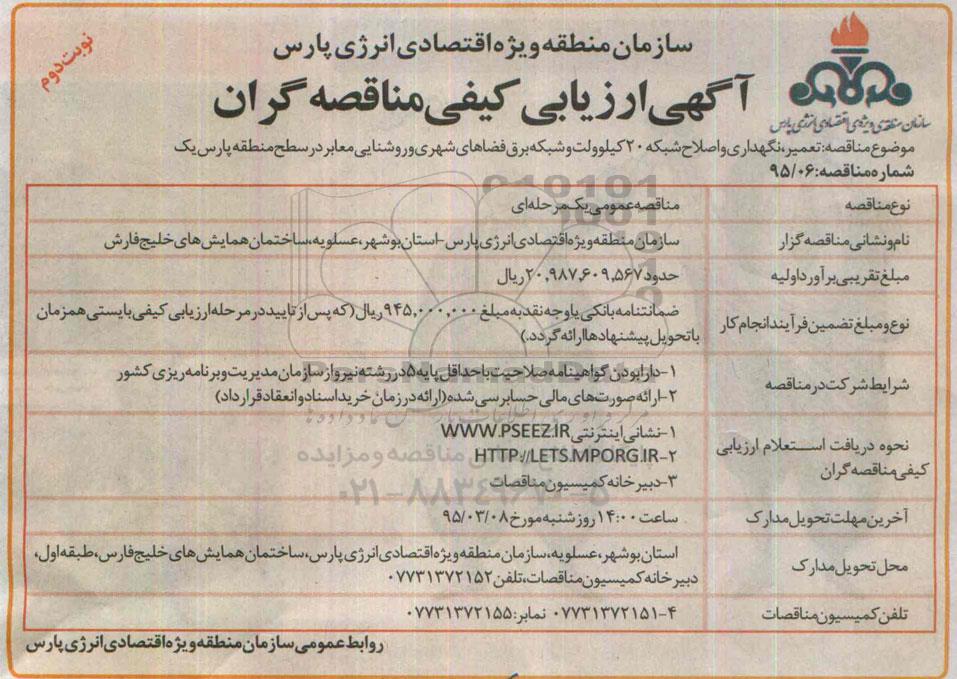 سازمان منطقه ویژه اقتصادی انرژی پارس
نوبت دوم
آگهی ارزیابی کیفی مناقصه گران
سازمان منطقه‌ی ویژه‌ی اقتصادی انرژی پارس
موضوع مناقصه: تعمیر، نگهداری و اصلاح شبکه ۲۰ کیلوولت و شبکه برق فضاهای شهری و روشنایی معابر در سطح منطقه پارس یک
شماره مناقصه: ۹۵/۰۶
نوع مناقصه
مناقصه عمومی یک مرحله ای
نام و نشانی مناقصه گزار
سازمان منطقه ویژه اقتصادی انرژی پارس-استان بوشهر، عسلویه، ساختمان همایش های خلیج فارش
مبلغ تقریبی برآورد اولیه
حدود ۲۰,۹۸۷,۶۰۹,۵۶۷ ریال
نوع و مبلغ تضمین فرآیند انجام کار
ضمانتنامه بانکی یا وجه نقد به مبلغ ۹۴۵,۰۰۰,۰۰۰ ریال (که پس از تایید در مرحله ارزیابی کیفی بایستی همزمان
با تحویل پیشنهادها ارائه گردد.)
شرایط شرکت در مناقصه
۱-دارا بودن گواهینامه صلاحیت با حداقل پایه ۵ در رشته نیرو از سازمان مدیریت و برنامه ریزی کشور
۲-ارائه صورت های مالی حسابرسی شده (ارائه در زمان خرید اسناد و انعقاد قرارداد)
نحوه دریافت استعلام ارزیابی
کیفی مناقصه گران
۱-نشانی اینترنتی WWW.PSEEZ.IR
۲-HTTP://LETS.MPORG.IR
۳-دبیرخانه کمیسیون مناقصات
آخرین مهلت تحویل مدارک
ساعت ۱۴:۰۰ روز شنبه مورخ ۹۵/۰۳/۰۸
محل تحویل مدارک
استان بوشهر، عسلویه، سازمان منطقه ویژه اقتصادی انرژی پارس، ساختمان همایش های خلیج فارس، طبقه اول،
دبیرخانه کمیسیون مناقصات، تلفن ۰۷۷۳۱۳۷۲۱۵۲
تلفن کمیسیون مناقصات
۰۷۷۳۱۳۷۲۱۵۱-۴ نمابر: ۰۷۷۳۱۳۷۲۱۵۵
روابط عمومی سازمان منطقه ویژه اقتصادی انرژی پارس